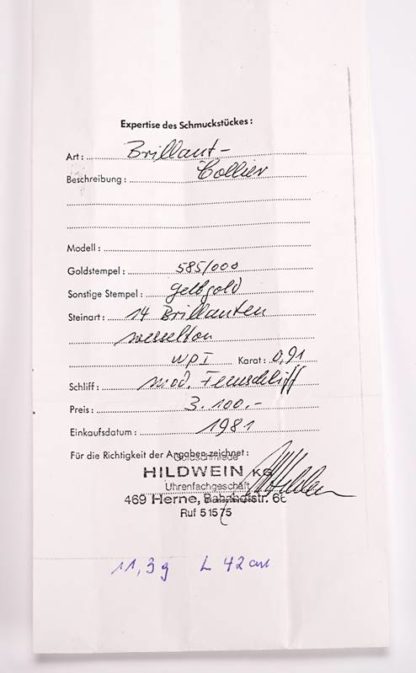 Expertise des Schmuckstückes:
Art: Brillant-
Beschreibung: Collier
Modell:
Goldstempel: 585/000
Sonstige Stempel: gelbgold
Steinart: 14 Brillanten
wesselton
wpI Karat: 0,91
Schliff: mod. Feinschliff
Preis: 3.100.-
Einkaufsdatum: 1981
Für die Richtigkeit der Angaben zeichnet:
HILDWEIN KG
Uhrenfachgeschäft
469 Herne, Bahnhofstr. 6
Ruf 51575
11,3g L 42 cm